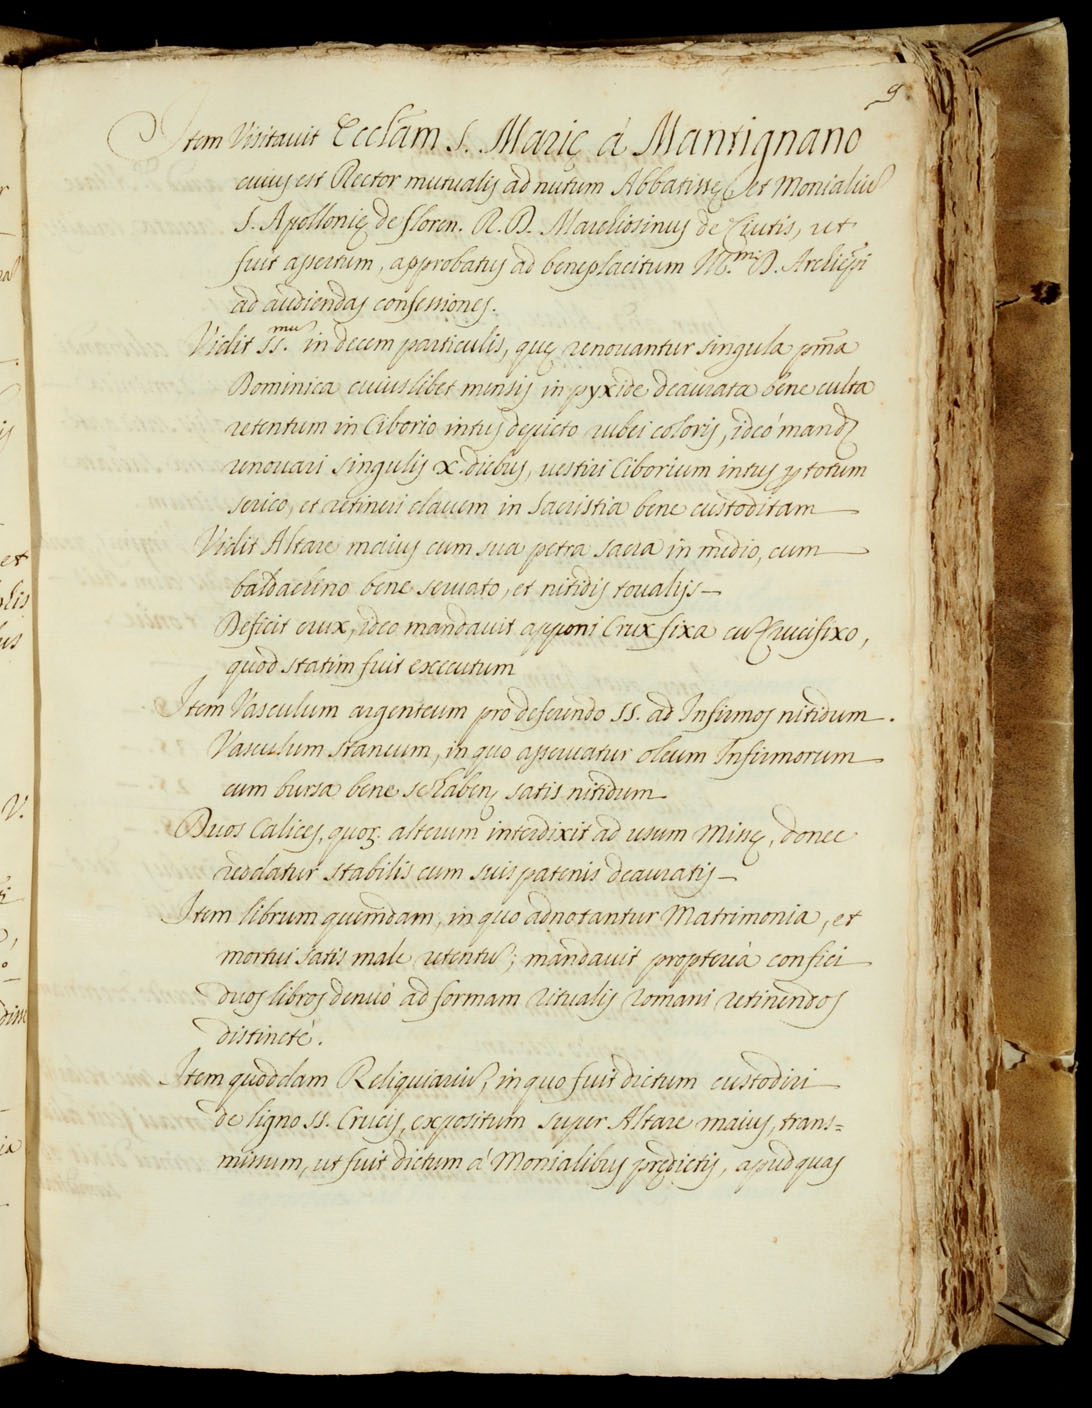 9
Item Visitauit Ecclã̃m S. Marię à Mantignano
cuius est Rector mutualis ad nutum Abbatissę, et Monialiũ
S. Apollonię de floren. R. D. Marchiosinus de Ciutis, ut
fuit assertum, approbatus ad beneplacitum Ill.mi D. Archiepĩ
ad audiendas confessiones.
Vidit SS.mũ in decem particulis, quę renouantur singula pma
Dominica cuiuslibet mensis in pyxide deaurata bene culta
retentum in Ciborio intus depicto rubei coloris, ideò mand.
renouari singulis x. diebus, vestiri Ciborium intus p totum
serico, et retineri clauem in Sacristia bene custoditam
Vidit Altare maius cum sua petra sacra in medio, cum
baldachino bene seruato, et nitidis toualijs
Deficit crux, ideo mandauit apponi Crux fixa cũ Crucifixo,
quod statim fuit executum
Item Vasculum argenteum pro deferendo SS. ad Infirmos nitidum.
Vasculum staneum, in quo asseruatur oleum Infirmorum
cum bursa bene se haben, satis nitidum
Duos Calices, quoꝝ alterum interdixit ad usum Missę, donec
reddatur stabilis cum suis patenis deauratis
Item librum quemdam, in quo adnotantur Matrimonia, et
mortui satis male retentũ; mandauit proptereà confici
duos libros denuò ad formam ritualis romani retinendos
distinctè.
Item quoddam Reliquiariũ, in quo fuit dictum custodiri
de ligno SS. Crucis, expositum super Altare maius, trans=
missum, ut fuit dictum à Monialibus prędictis, apud quas